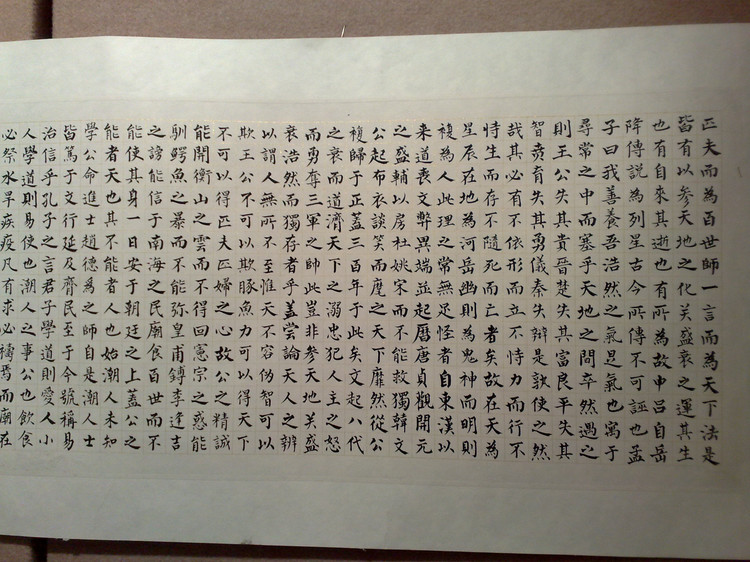 匹夫而為百世師一言而為天下法是
皆有以參天地之化关盛衰之運其生
也有自來其逝也有所為故申呂自岳
降傳說為列星古今所傳不可誣也孟
子曰我善養吾浩然之氣是氣也寓于
尋常之中而塞乎天地之間卒然遇之
則王公失其貴晉楚失其富良平失其
智賁育失其勇儀秦失其辯是孰使之然
哉其必有不依形而立不恃力而行不
恃生而存不隨死而亡者矣故在天為
星辰在地為河岳幽則為鬼神而明則
複為人此理之常無足怪者自東漢以
来道喪文弊異端並起曆唐貞觀開元
之盛輔以房杜姚宋而不能救獨韓文
公起布衣談笑而麾之天下靡然從公
複歸于正蓋三百年于此矣文起八代
之衰而道濟天下之溺忠犯人主之怒
而勇奪三軍之帥此豈非參天地关盛
衰浩然而獨存者乎蓋嘗論天人之辨
以謂人無所不至惟天不容偽智可以
欺王公不可以欺豚魚力可以得天下
不可以得匹夫匹婦之心故公之精誠
能開衡山之雲而不得回憲宗之惑能
馴鱷魚之暴而不能弥皇甫鎛李逢吉
之謗能信于南海之民廟食百世而不
能使其身一日安于朝廷之上蓋公之
能者天也其不能者人也始潮人未知
學公命進士趙德為之師自是潮人士
皆篤于文行延及齊民至于今號稱易
治信乎孔子之言君子學道則愛人小
人學道則易使也潮人之事公也飲食
必祭水旱疾疫凡有求必禱焉而廟在